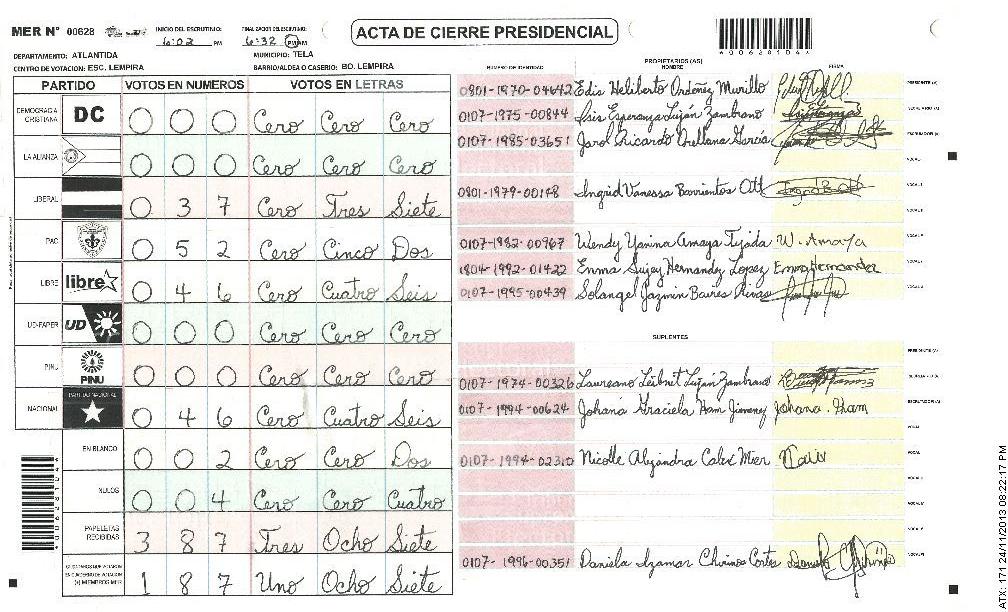 MER N° 00628
INICIO DEL ESCRUTINIO:
6:02 PM
FINALIZACION DEL ESCRUTINIO:
6:32 PM
ACTA DE CIERRE PRESIDENCIAL
DEPARTAMENTO: ATLANTIDA
MUNICIPIO: TELA
CENTRO DE VOTACION: ESC. LEMPIRA
BARRIO/ALDEA O CASERIO: BO. LEMPIRA
PARTIDO VOTOS EN NUMEROS VOTOS EN LETRAS
DEMOCRACIA CRISTIANA DC 0 0 0 Cero Cero Cero
LA ALIANZA 0 0 0 Cero Cero Cero
LIBERAL 0 3 7 Cero Tres Siete
PAC 0 5 2 Cero Cinco Dos
LIBRE libre 0 4 6 Cero Cuatro Seis
UD-FAPER UD 0 0 0 Cero Cero Cero
PINU PINU 0 0 0 Cero Cero Cero
NACIONAL PARTIDO NACIONAL 0 4 6 Cero Cuatro Seis
EN BLANCO 0 0 2 Cero Cero Dos
NULOS 0 0 4 Cero Cero Cuatro
PAPELETAS RECIBIDAS 3 8 7 Tres Ocho Siete
CIUDADANOS QUE VOTARON EN CUADERNO DE VOTACION (+) MIEMBROS MER 1 8 7 Uno Ocho Siete
PROPIETARIOS (AS)
NUMERO DE IDENTIDAD NOMBRE FIRMA
0801-1970-04642 Edis Heliberto Ordoñez Murillo PRESIDENTE (A)
0107-1975-00844 Isis Esperanza Luján Zambrano SECRETARIO (A)
0107-1985-03651 Jarol Ricardo Orellana García ESCRUTADOR (A)
VOCAL I
0801-1979-00148 Ingrid Vanessa Barrientos Ott
0107-1982-00967 Wendy Yanina Amaya Tejada W. Amaya
1804-1992-01422 Emma Sujey Hernandz Lopez Emma Hernandez
0107-1995-00439 Solangel Jazmin Baires Rivas
SUPLENTES
PRESIDENTE (A)
0107-1974-00326 Laureano Leibnit Luján Zambrano
0107-1994-00624 Johana Graciela Ham Jimenez Johana Ham ESCRUTADOR (A)
VOCAL
0107-1994-02310 Nicolle Alejandra Calix Mier
0107-1996-00351 Daniela Izamar Chirinos Cortes
*00628104*
ATX: 171 24/11/2013 08:22:17 PM